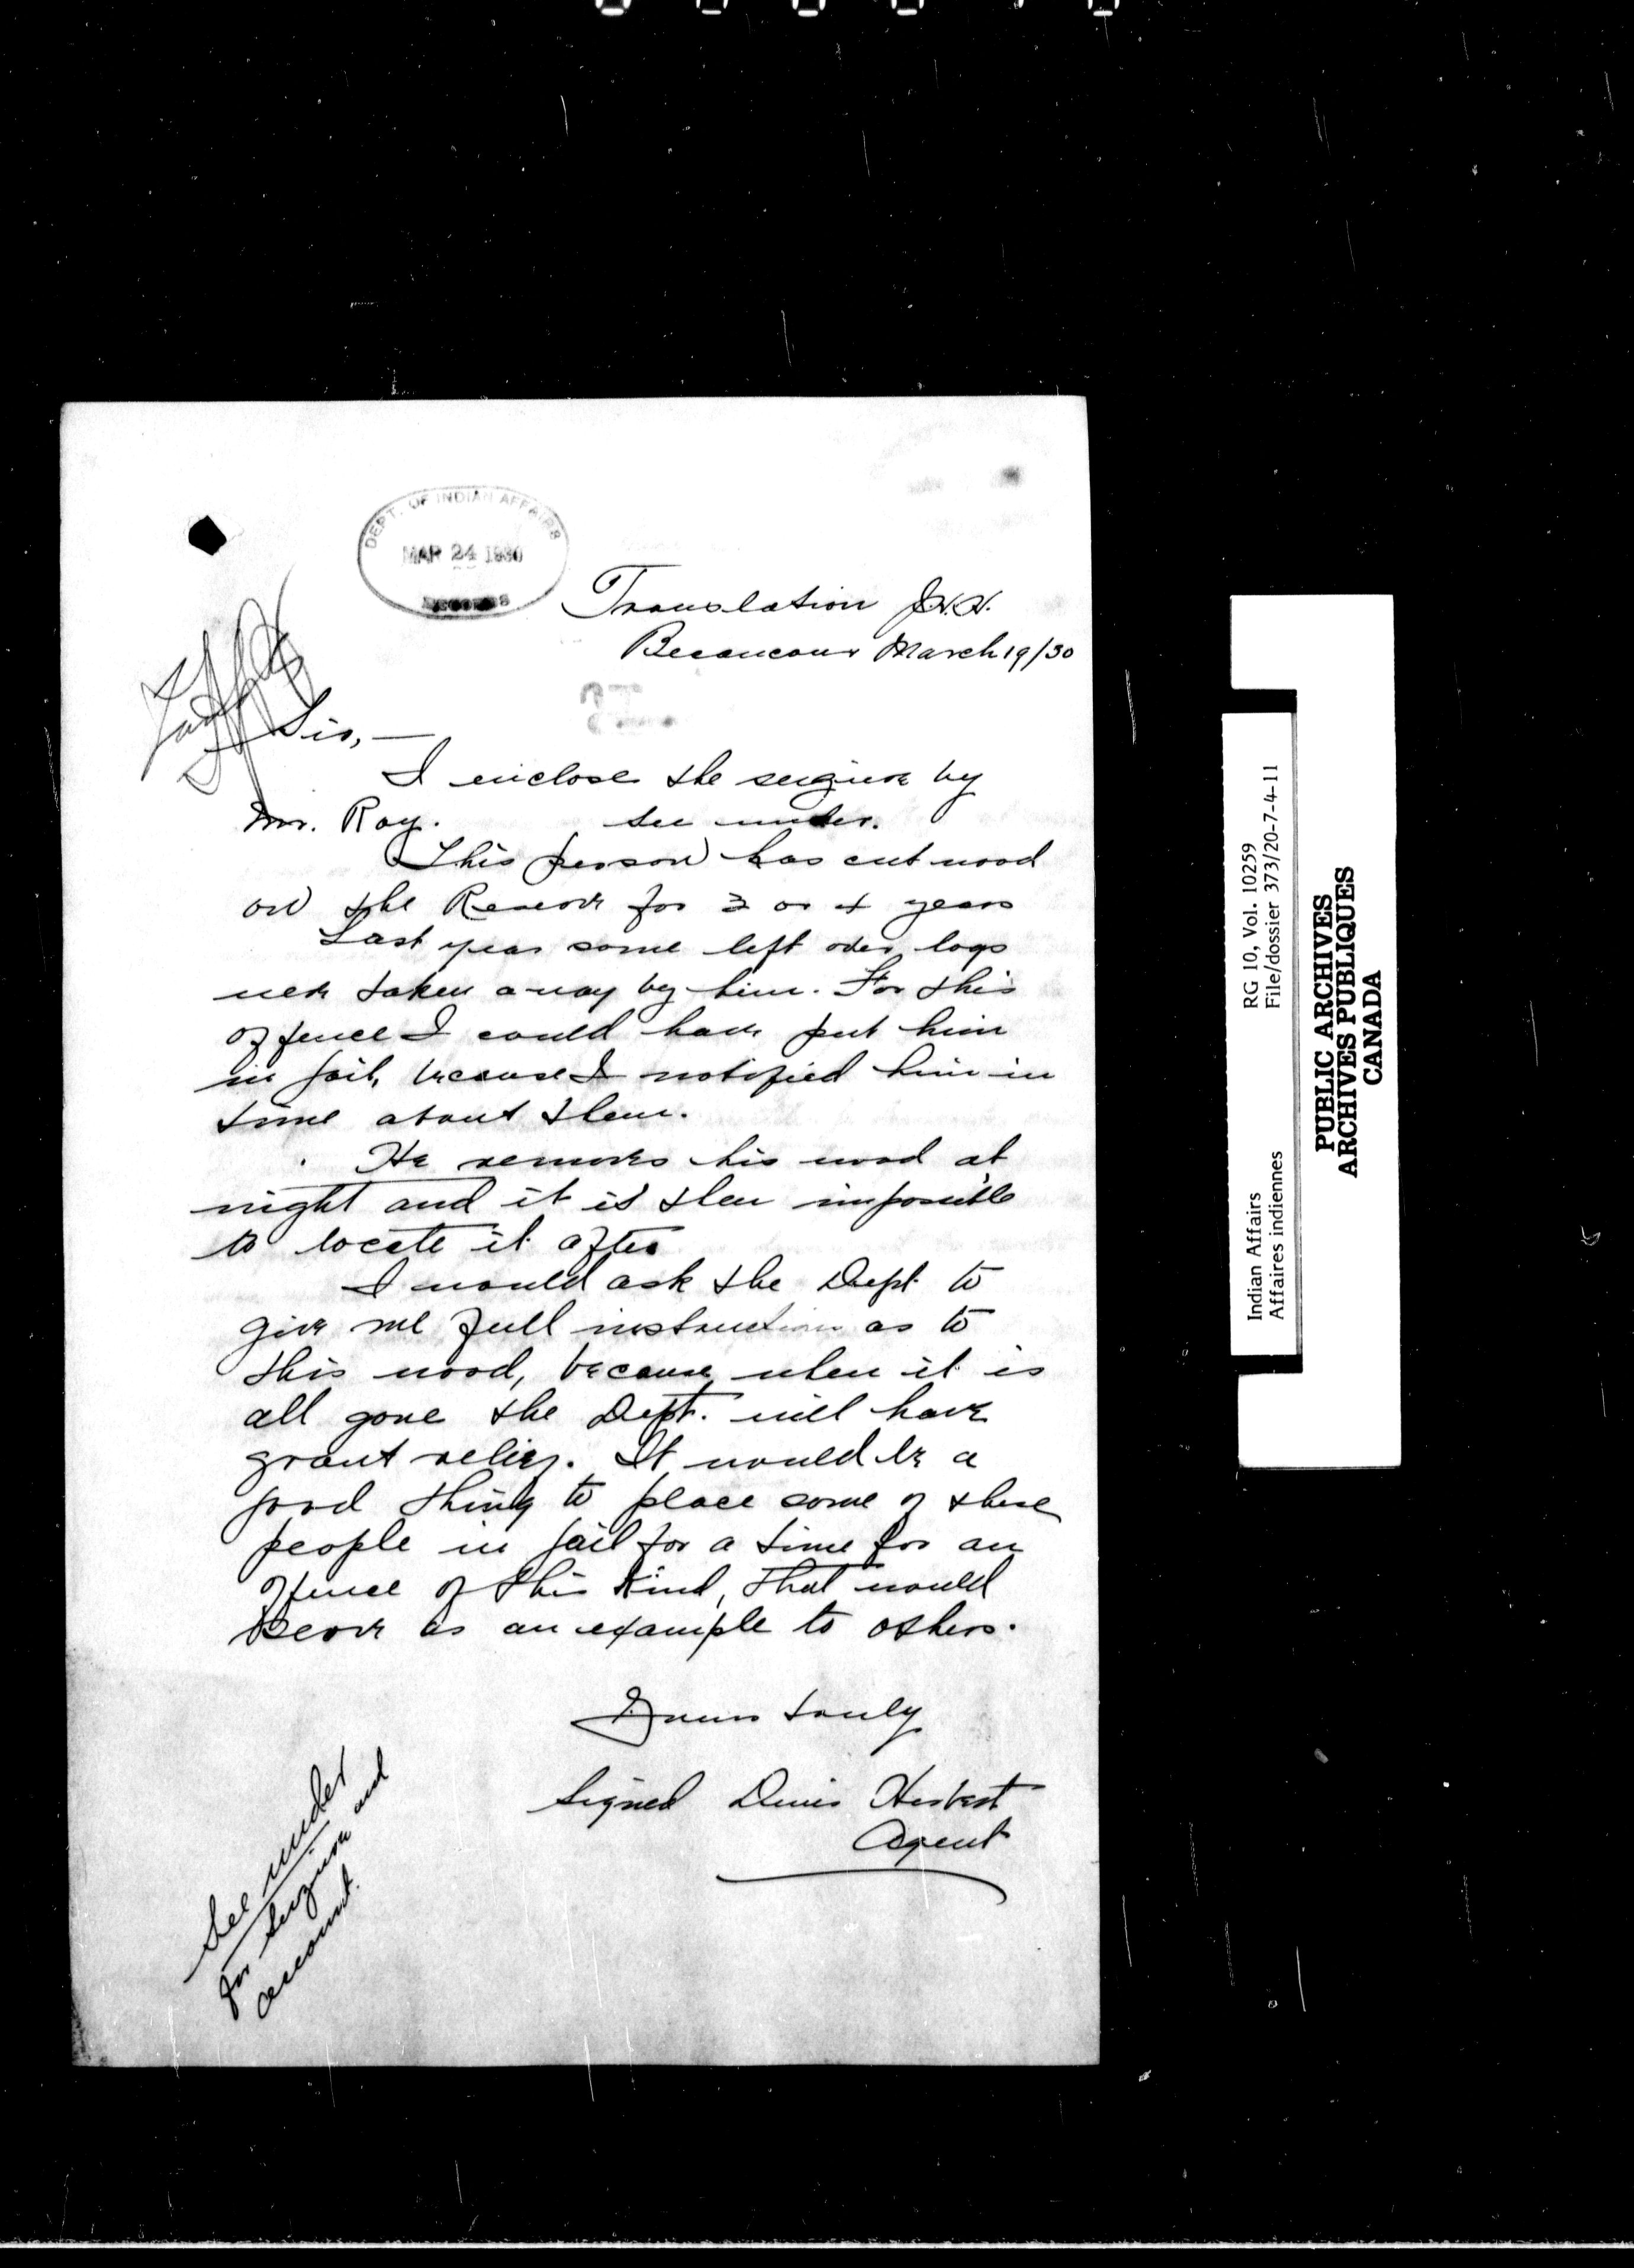 DEPT. OF INDIAN AFFAIRS
MAR 24 1930
RECORDS
Translation J.H.H.
Becancour March 19/30
Sir, —
I enclose the seizure by
Mr. Roy. see under.
This person has cut wood
on the Reserve for 3 or 4 years
Last year some left over logs
were taken away by him. For this
offence I could have put him
in jail, because I notified him in
time about them.
He removes his wood at
night and it is then impossible
to locate it after
I would ask the Dept to
give me full instruction as to
this wood, because when it is
all gone the Dept. will have
grant relief. It would be a
good thing to place some of these
people in jail for a time for an
offence of this kind, that would
serve as an example to others.
Yours truly
Signed Denis Hebert
Agent
See under
for seizure and
account.
Indian Affairs RG 10, Vol. 10259
Affaires indiennes File/dossier 373/20-7-4-11
PUBLIC ARCHIVES
ARCHIVES PUBLIQUES
CANADA